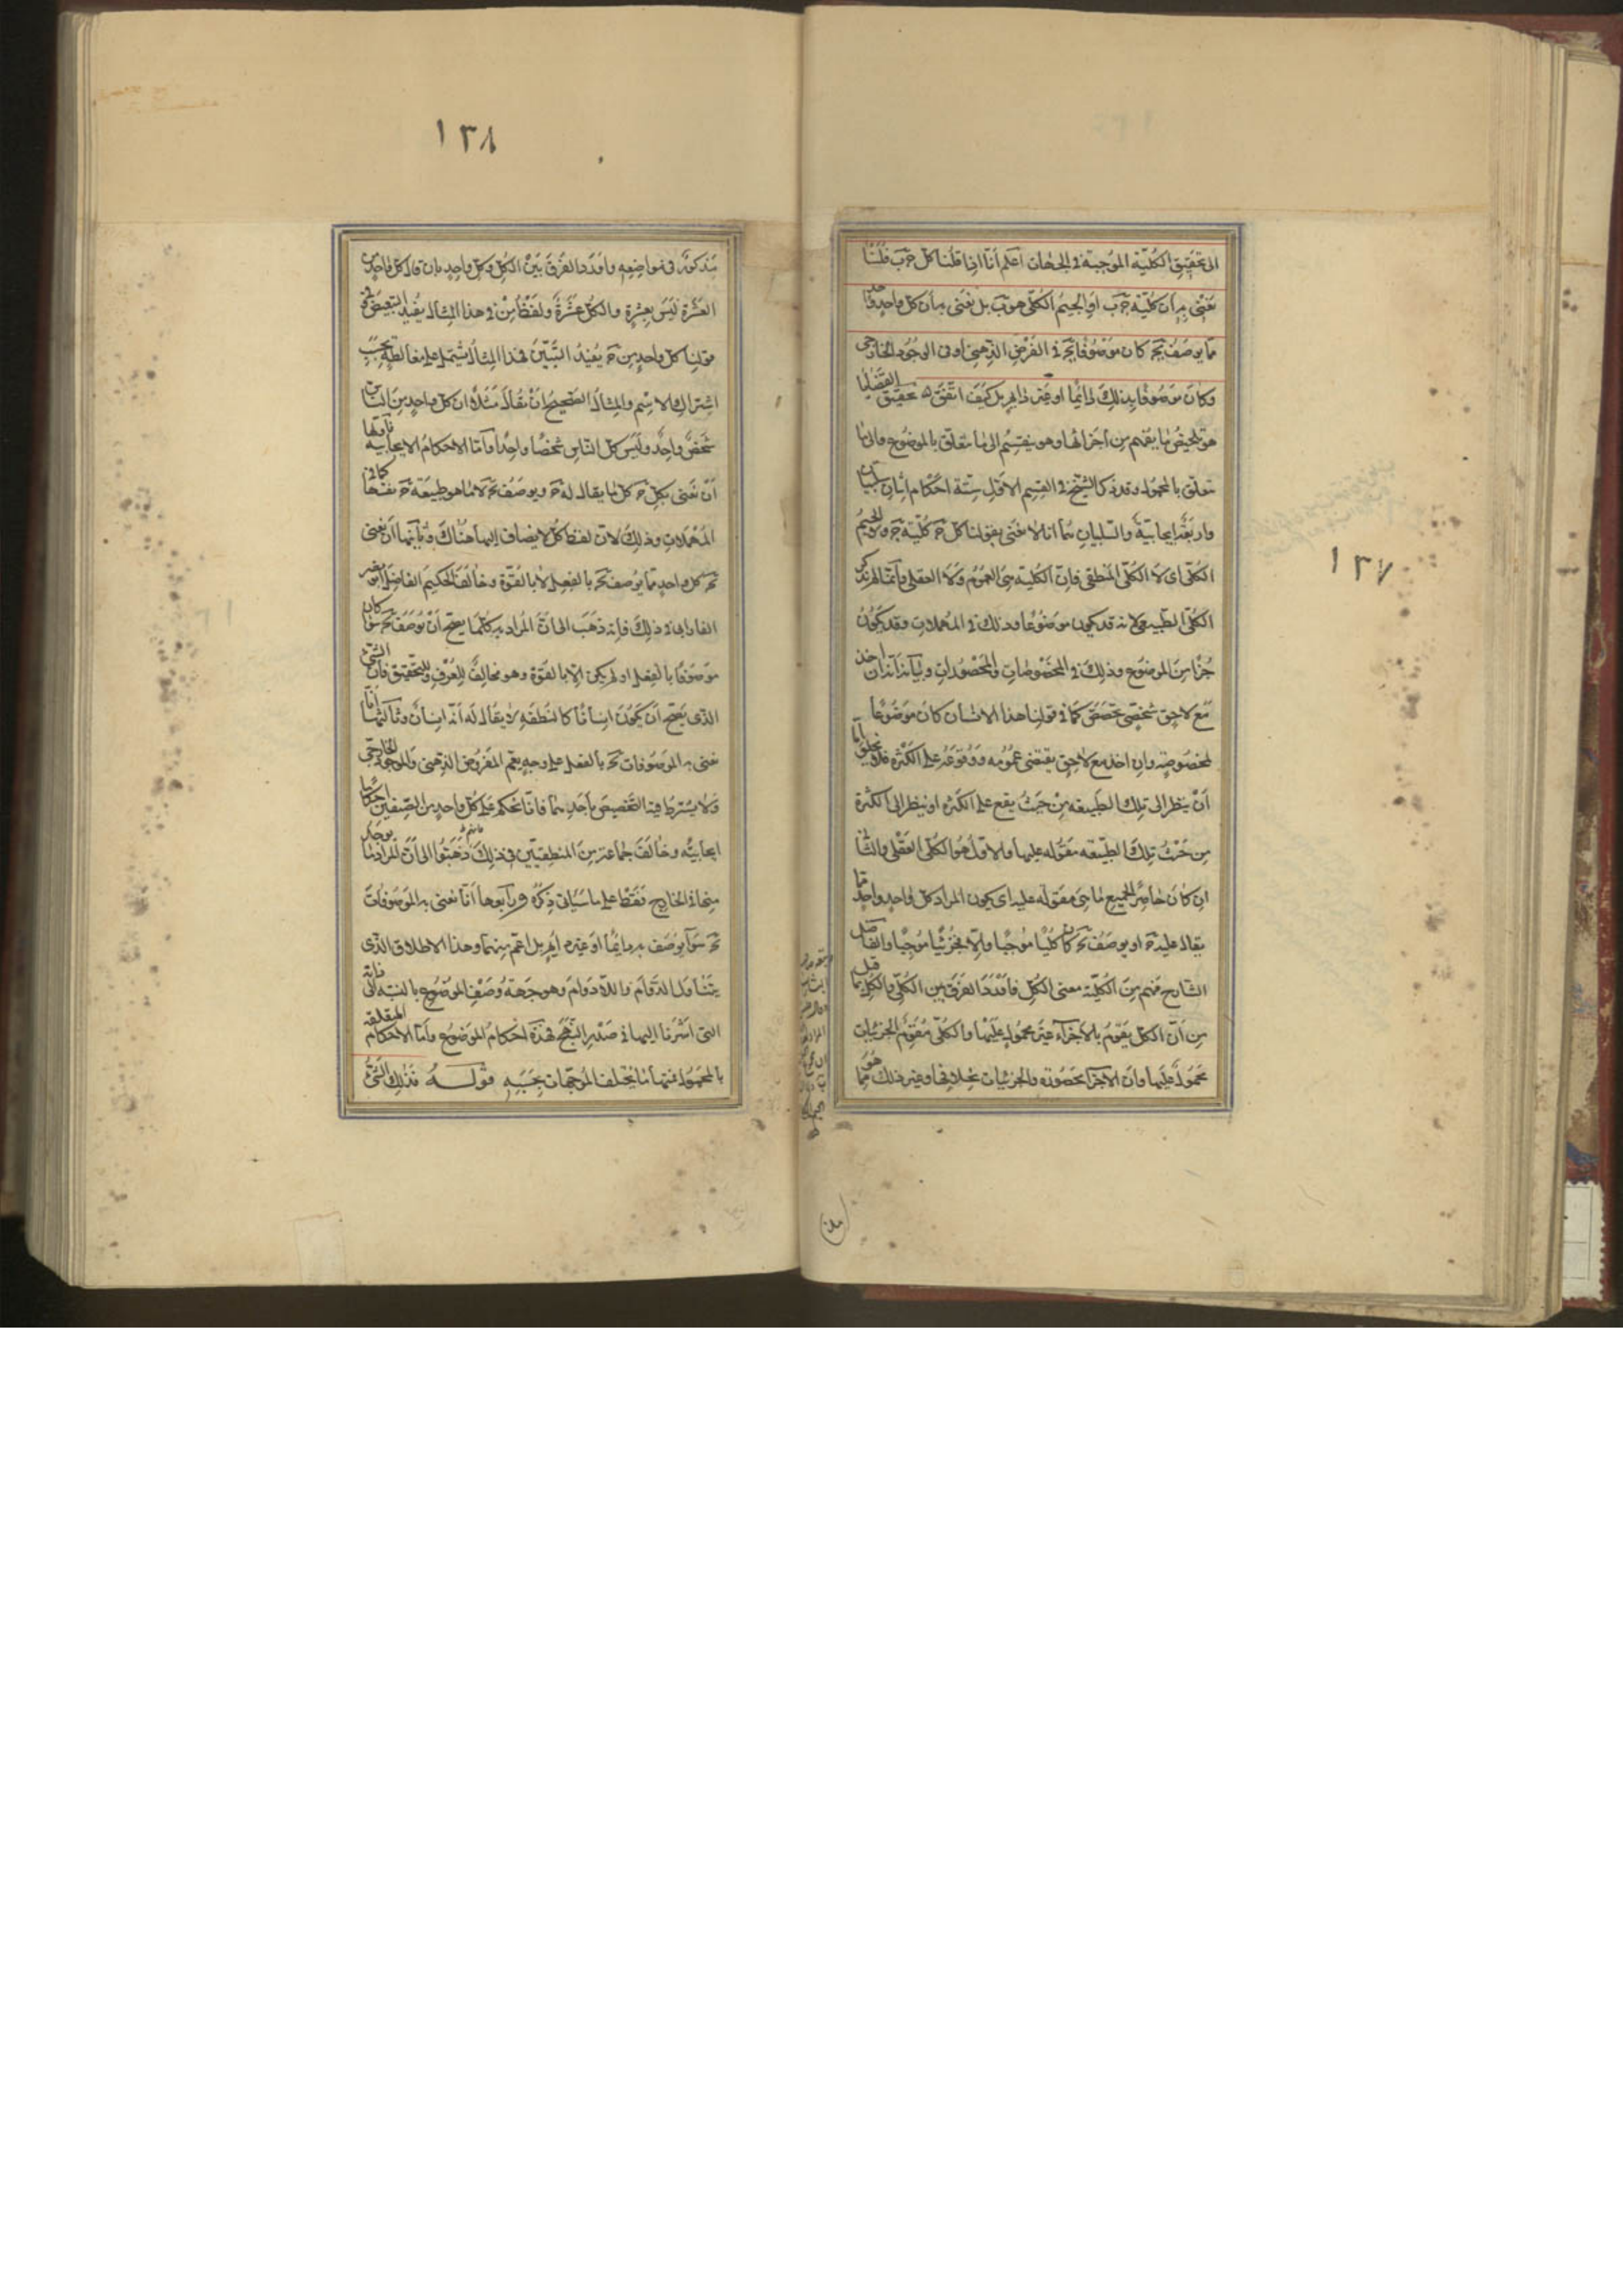 ١٣٧
الى تحقيق الكلية الموجبة فى الجهات اعلم أنّا اذا قلنا كل جَ بَ فلسنا
نعنى به أن كلية جَ بَ او الجيم الكلى هو بَ بل نعنى به أن كل واحد واحد
مما يوصف بجَ كان موصوفا بجَ فى الفرض الذهنى او فى الوجود الخارجى
وكان موصوفا بذلك دائما او غير دائم بل كيف اتفق تحقيق القضايا
هو تلخيص ما يفهم من أجزائها وهو ينقسم الى ما يتعلق بالموضوع والى ما
يتعلق بالمحمول وقد ذكر الشيخ فى القسم الاول ستة احكام اثنان سلبيان
واربعة ايجابية والسلبيان هما انا لا نعنى بقولنا كل جَ كلية جَ ولا الجيم
الكلى اى لا الكلى المنطقى فان الكلية هى العموم ولا العقلى وانما لم يذكر
الكلى الطبيعى لانه قد يكون موضوعا وذلك فى المهملات وقد يكون
جزءا من الموضوع وذلك فى المخصوصات والمحصورات وبيانه أنه ان اخذ
مع لاحق شخصى مخصص كما فى قولنا هذا الانسان كان موضوعا
لمخصوصة وان اخذ مع لاحق يقتضى عمومه ووقوعه على الكثرة فلا يخلو اما
أن ينظر الى تلك الطبيعة من حيث يقع على الكثرة او ينظر الى الكثرة
من حيث تلك الطبيعة مقولة عليها والاول هو الكلى العقلى والثانى
ان كان حاصر الجميع ما هى مقولة عليه اى يكون المراد كل واحد واحد مما
يقال عليه جَ او يوصف بجَ كان كليا موجبا والا فجزئيا موجبا والفاضل
الشارح فهم من الكلية معنى الكل فأورد الفرق بين الكلى والكل بما قيل
من أن الكل يتقوم بالاجزاء غير محمول عليها والكلى مقوم الجزئيات
محمولا عليها وأن الاجزاء محصورة والجزئيات بخلافها وغير ذلك مما هو
١٣٨
مذكور فى مواضعه واورد الفرق بين الكل وكل واحد بان قال كل واحد من
العشرة ليس بعشرة والكل عشرة ولفظ من فى هذا المثال يفيد التبعيض وفى
قولنا كل واحد من جَ يفيد التبيين فهذا المثال يشتمل على مغالطة بحسب
اشتراك الاسم والمثال الصحيح ان يقال مثلا ان كل واحد من الناس
شخص واحد وليس كل الناس شخصا واحدا واما الاحكام الايجابية فاولها
أن نعنى بكل جَ كل ما يقال له جَ ويوصف بجَ لا ما هو طبيعة جَ نفسها كما فى
المهملات وذلك لان لفظ كل لا يضاف اليها هناك وثانيها أن نعنى
به كل واحد مما يوصف بجَ بالفعل لا بالقوة وخالف الحكيم الفاضل ابو نصر
الفارابى فى ذلك فانه ذهب الى ان المراد به كل ما يصح ان يوصف بجَ سواء كان
موصوفا بالفعل او لم يكن الا بالقوة وهو مخالف للعرف والتحقيق فان الشىء
الذى يصح أن يكون انسانا كالنطفة لا يقال له انه انسان وثالثها أنا
نعنى به الموصوفات بجَ بالفعل على وجه يعم المفروض الذهنى والموجود الخارجى
ولا يشترط فيه التخصيص بأحدهما فانا نحكم على كل واحد من الصنفين احكاما
ايجابية وخالف جماعة من المنطقيين فى ذلك فانهم ذهبوا الى أن المراد ما يوجد
منها فى الخارج فقط على ما سيأتى ذكره ورابعها أنا نعنى به الموصوفات
بجَ سواء يوصف به دائما او غير دائم بل اعم منهما وهذا الاطلاق الذى
يتناول الدوام واللادوام وهو جهة وصف الموضوع بالنسبة الى ذاته
التى اشرنا اليها فى صدر النهج فهذه احكام الموضوع واما الاحكام المتعلقة
بالمحمول فمنها ما يختلف الموجهات بحسبه قوله فذلك الشىء